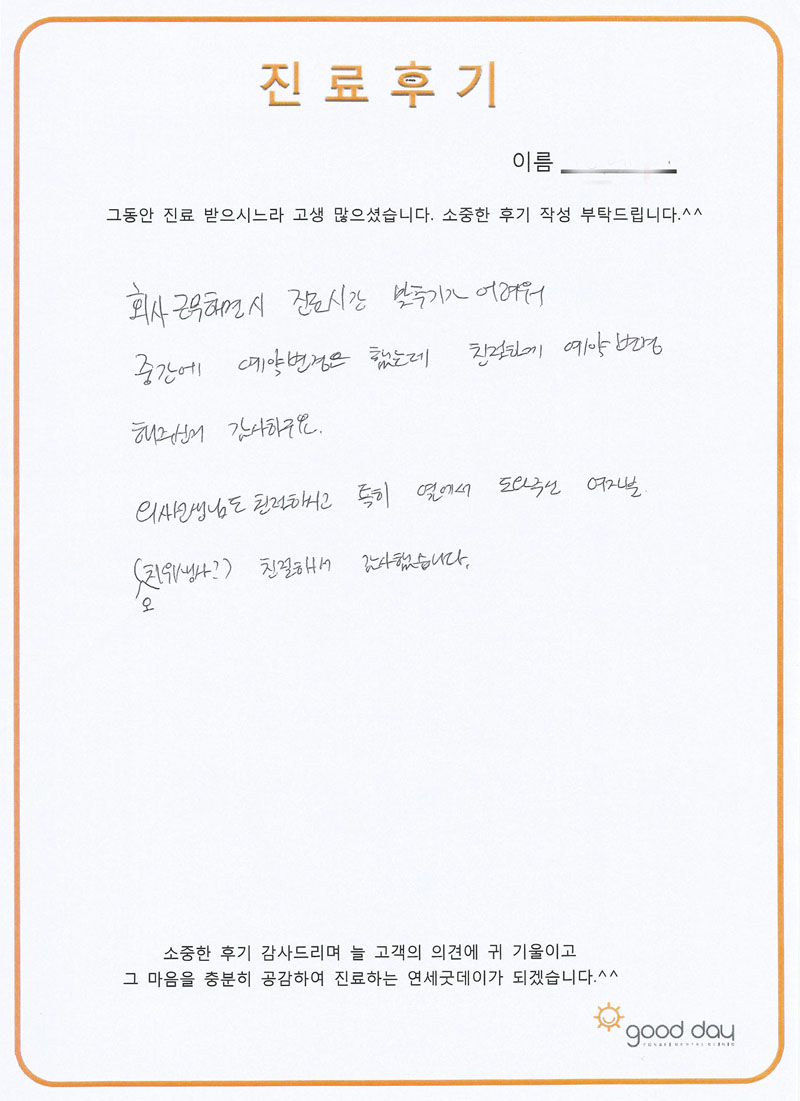 진료후기
이름
그동안 진료 받으시느라 고생 많으셨습니다. 소중한 후기 작성 부탁드립니다.^^
회사 근무하면서 진료시간 맞추기가 어려워
중간에 예약변경은 했는데 친절하게 예약변경
해주셔서 감사하구요.
의사선생님도 친절하시고 특히 옆에서 도와주신 여자분.
(치위생사?) 친절해서 감사했습니다.
오
소중한 후기 감사드리며 늘 고객의 의견에 귀 기울이고
그 마음을 충분히 공감하여 진료하는 연세굿데이가 되겠습니다.^^
good day
YONSEI DENTAL CLINIC